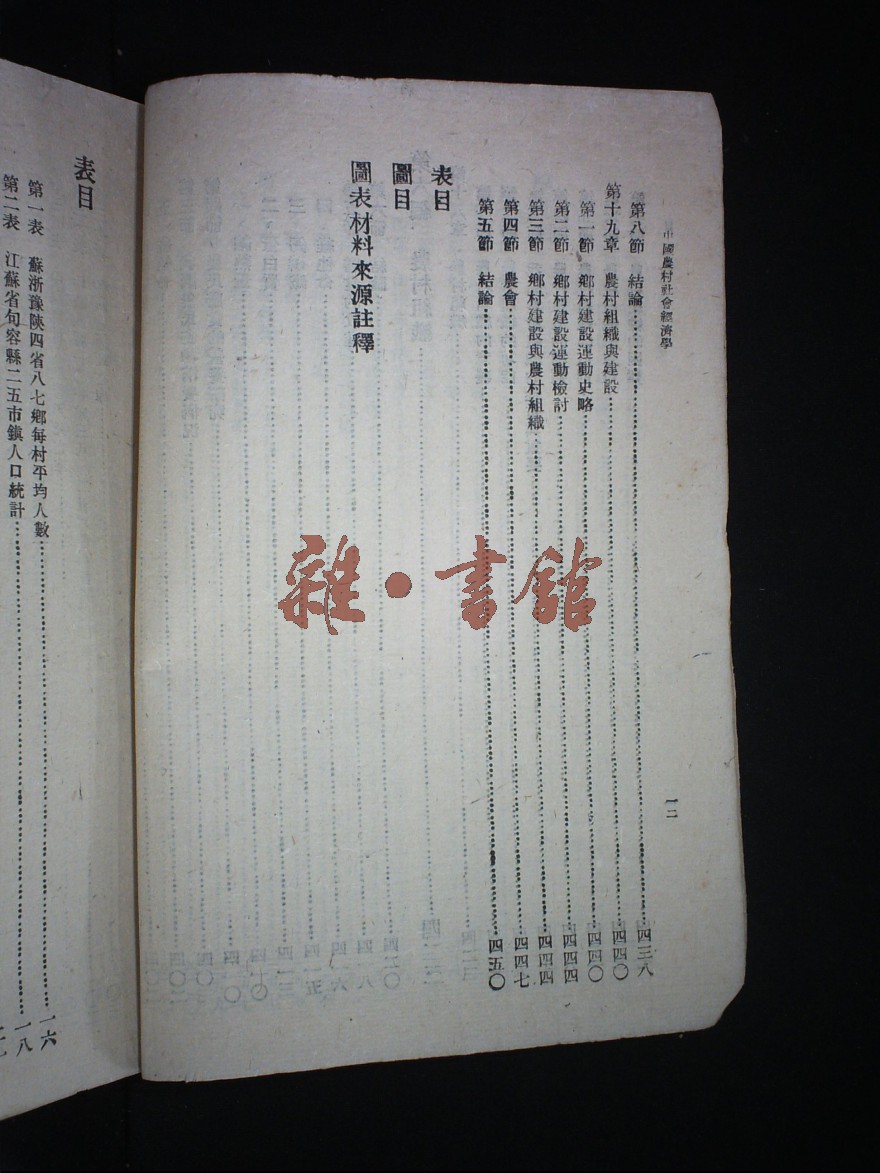 中國農村社會經濟學
一二
第八節 結論 四三八
第十九章 農村組織與建設 四四〇
第一節 鄉村建設運動史略 四四〇
第二節 鄉村建設運動檢討 四四四
第三節 鄉村建設與農村組織 四四四
第四節 農會 四四七
第五節 結論 四五〇
表目
圖目
圖表材料來源註釋
表目
第一表 蘇浙豫陝四省八七鄉每村平均人數 一六
第二表 江蘇省句容縣二五市鎮人口統計 一八
雜·書館